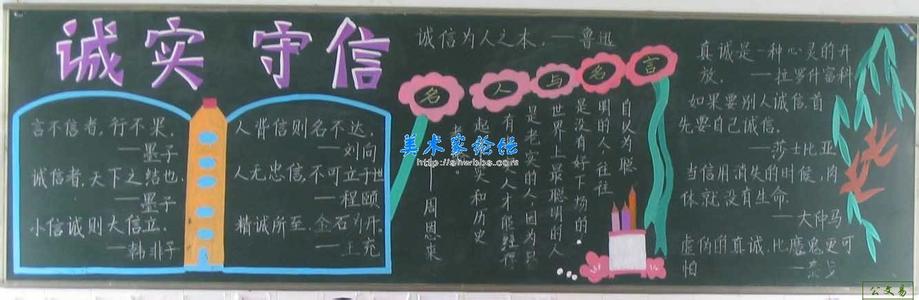 诚实 守信
言不信者，行不果。
——墨子
诚信者，天下之结也。
——墨子
小信诚则大信立。
——韩非子
人背信则名不达。
——刘向
人无忠信，不可立于世
——程颐
精诚所至，金石为开
——王充
诚信为人之本。——鲁迅
名人与名言
自以为聪
明的人往往
是没有好下场的。
世界上最聪明的人
是老实的人，因为只
有老实人才能经得
起事实和历史
——周恩来
真诚是一种心灵的开
放。——拉罗什富科
如果要别人诚信，首
先要自己诚信。
——莎士比亚
当信用消失的时候，肉
体就没有生命。
——大仲马
虚伪的真诚，比魔鬼更可
怕
美术家论坛
公文易